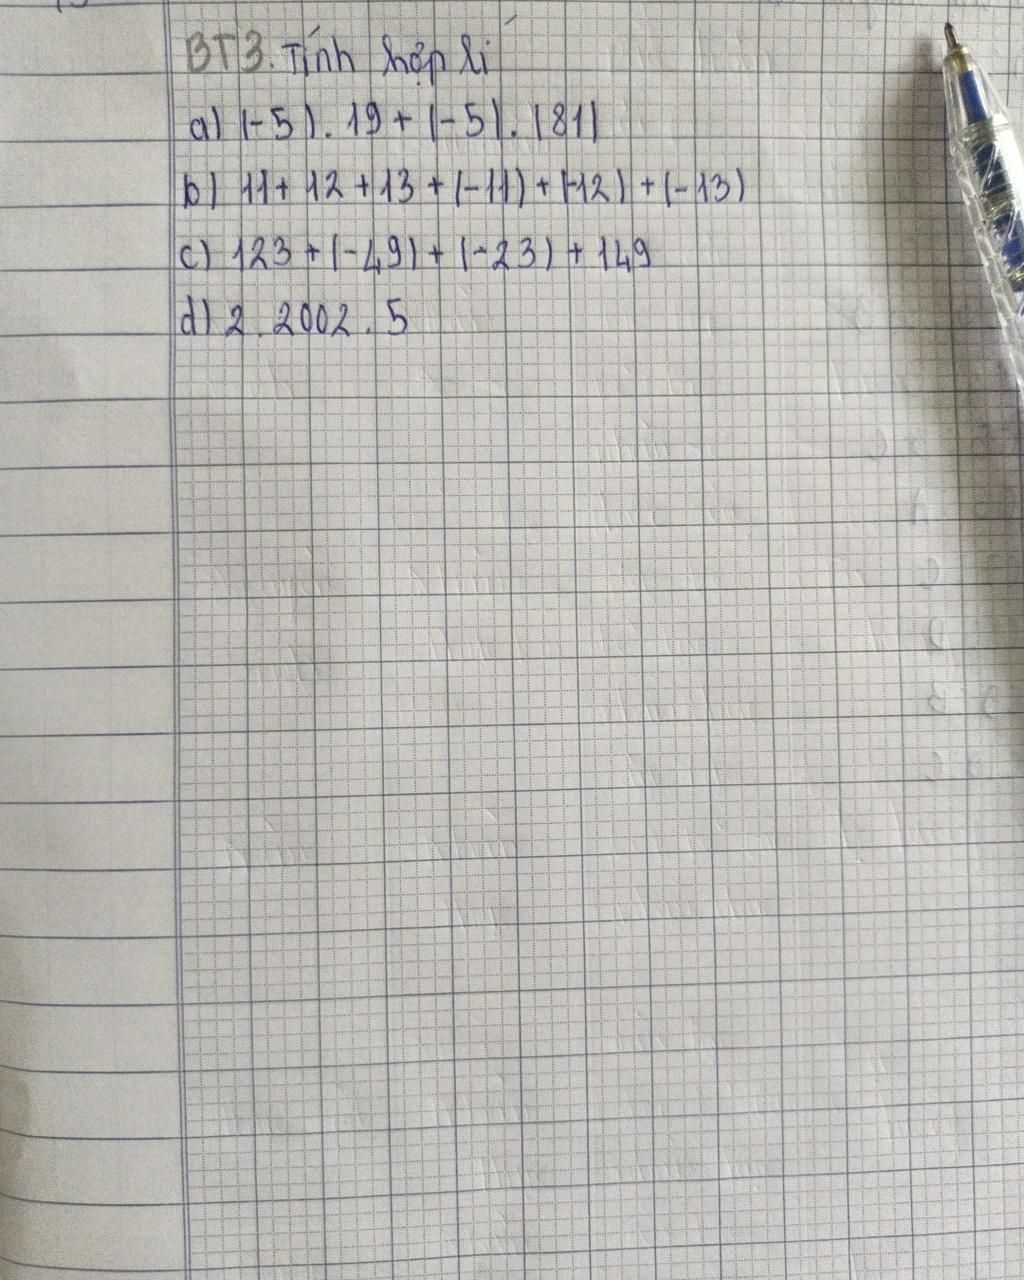 BT3. Tính hợp lí
a) (-5). 19 + (-5). (81)
b) 11 + 12 + 13 + (-11) + (-12) + (-13)
c) 123 + (-49) + (-23) + 149
d) 2 . 2002 . 5